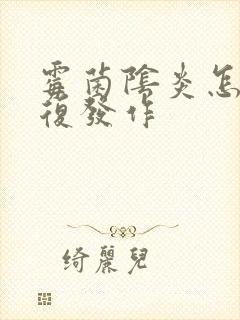 霉菌陰炎怎
復發作
綺麗兒